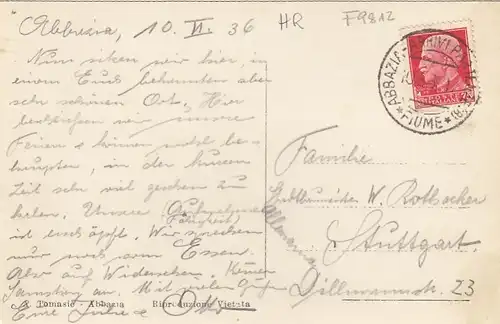 Abbazia, 10. VI. 36
HR
F9812
Nun sitzen wir hier, in
einem Euch bekannten aber
sehr schönen Ort. Hier
beschliessen wir unsere
Ferien & können nicht be-
haupten, in der kurzen
Zeit sehr viel gesehen zu
haben. Unsere
ist erschöpft. Wir sprechen
nur noch vom Essen.
Also auf Wiedersehen. Kommen
Samstag an. Mit vielen Grüßen
Eure
ABBAZIA
FIUME
Familie
Stadtbaumeister W. Rothacher
Stuttgart.
Dillmannstr. 23
Allemania
A. Tomasic - Abbazia
Riproduzione Vietata